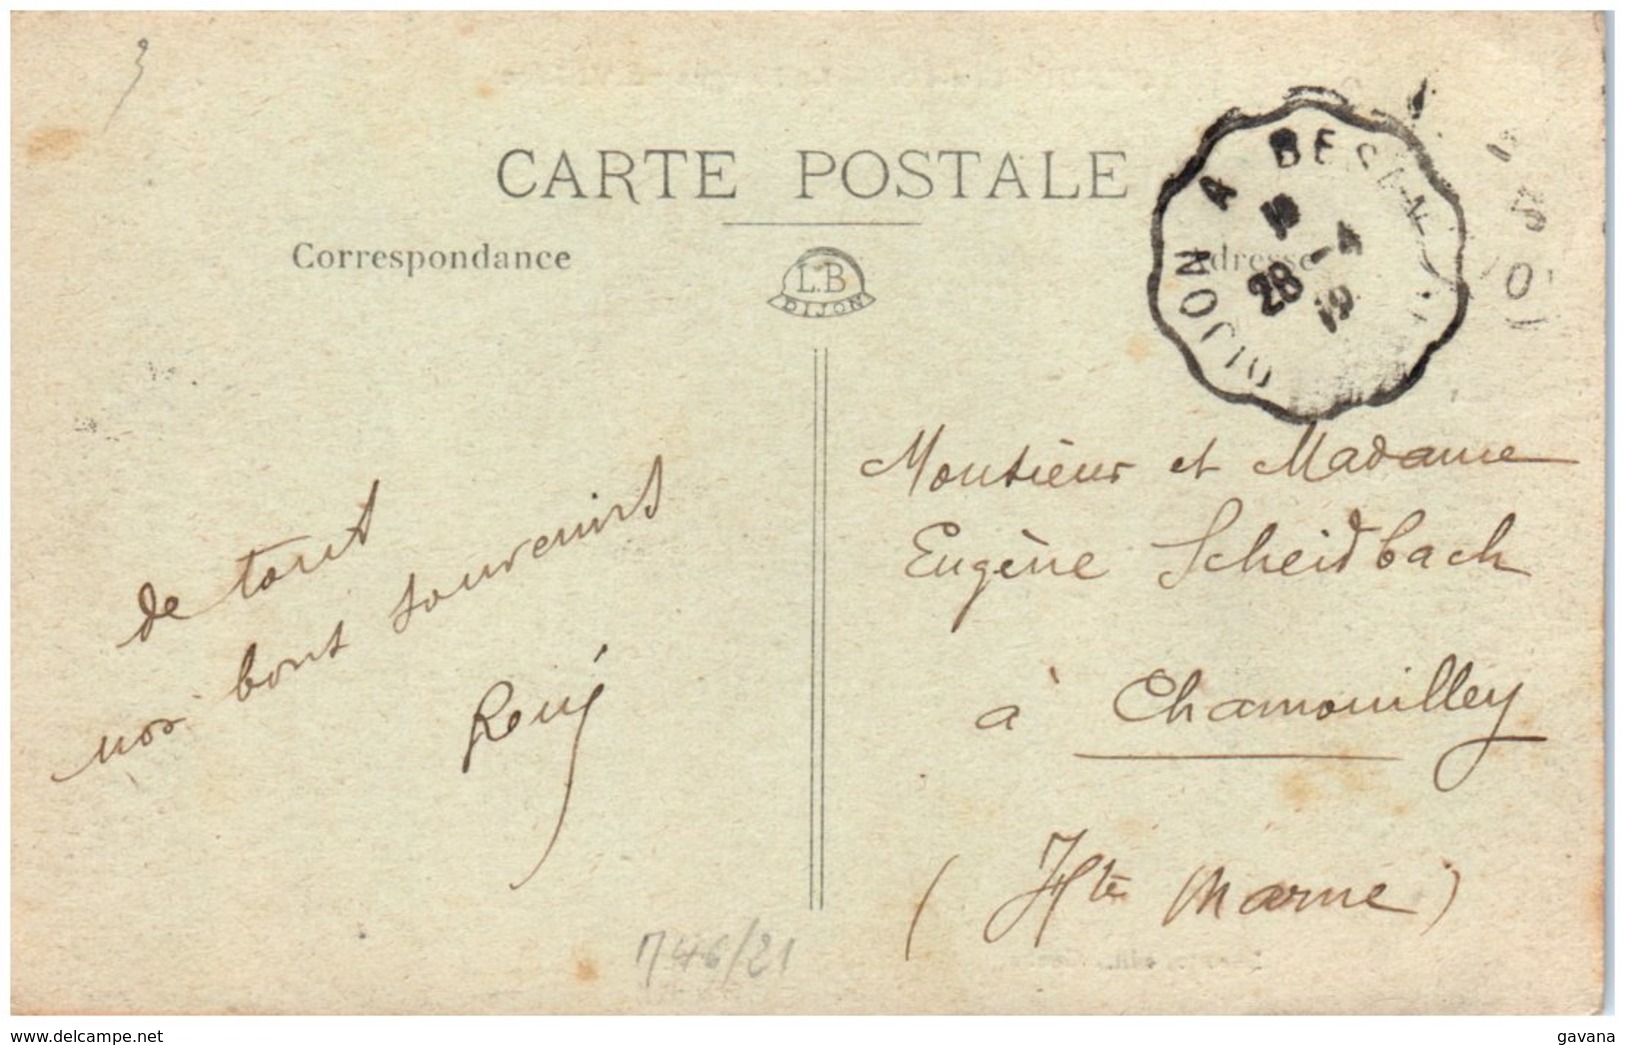 CARTE POSTALE
Correspondance
Adresse
L.B
DIJON
DIJON A BESAN
28 - 4
19
de tout
nos bons souvenirs
René
Monsieur et Madame
Eugène Scheidbach
à Chamouilley
(Hte Marne)
746/21
delcampe.net
gavana